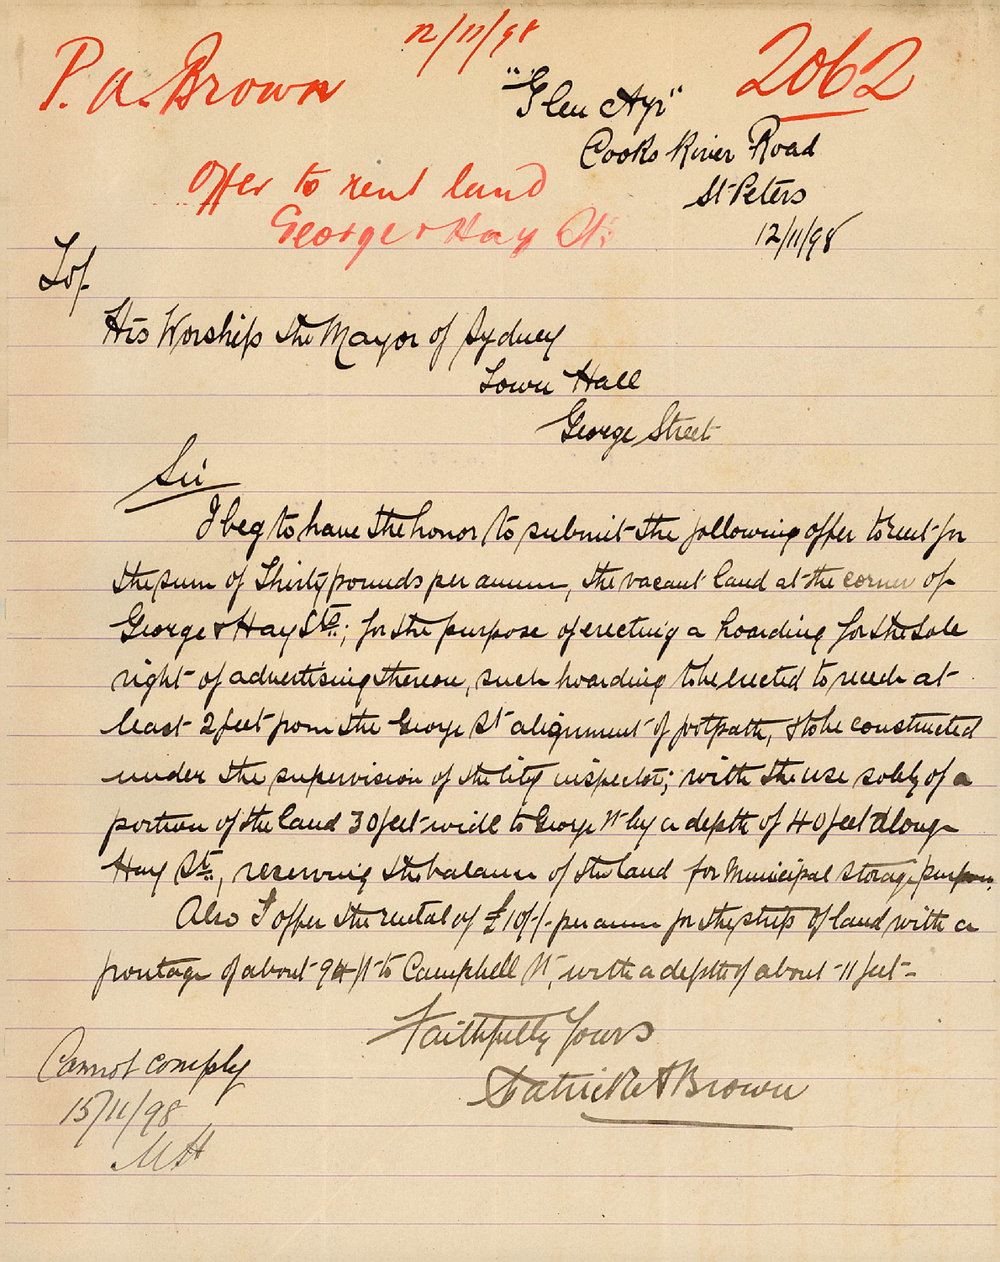 12/11/98
P. A. Brown
2062
"Glen Ayr"
Cooks River Road
St Peters
12/11/98
Offer to rent land
George & Hay Sts
To/-
His Worship the Mayor of Sydney
Town Hall
George Street
Sir
I beg to have the honor to submit the following offer to rent for
the sum of Thirty pounds per annum, the vacant land at the corner of
George & Hay Sts; for the purpose of erecting a hoarding for the sole
right of advertising thereon, such hoarding to be erected to recede at
least 2 feet from the George St alignment of footpath, & to be constructed
under the supervision of the City inspector; with the use solely of a
portion of the land 30 feet wide to George St by a depth of 40 feet along
Hay St, reserving the balance of the land for Municipal storage purposes.
Also I offer the rental of £10/-/- per annum for the strip of land with a
frontage of about 94 ft to Campbell St, with a depth of about 11 feet -
Faithfully Yours
Patrick A Brown
Cannot comply
15/11/98
MH